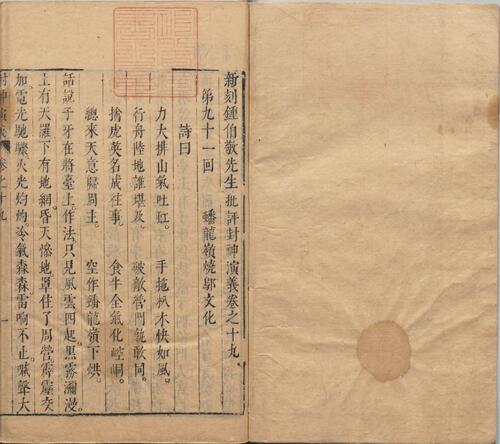 新刻鍾伯敬先生批評封神演義卷之十九
第九十一回　蟠龍嶺燒鄔文化
詩曰
力大排山氣吐虹。　手拖扒木快如風。
行舟陸地誰堪及。　破敵營門孰敢同。
擒虎英名成往事。　食牛全氣化崆峒。
總來天意歸周主。　空作蟠龍嶺下烘。
話說子牙在將臺上。作法。只見風雲四起。黑霧瀰漫。
上有天羅。下有地網。昏天慘地。罩住了周營。霹靂交
加。電光馳驟。火光灼灼。冷氣森森。雷响不止。喊聲大
封神演義　卷之十九　一